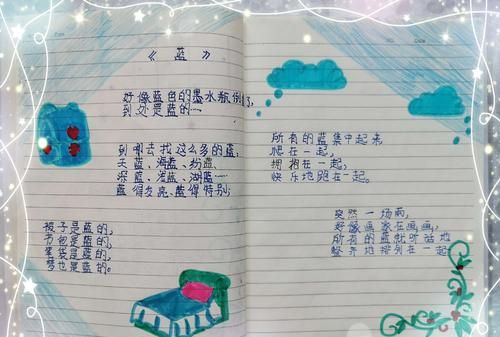 《蓝》
好像蓝色的墨水瓶倒了,
到处是蓝的一
到哪去找这么多的蓝,
天蓝、海蓝、粉蓝,
深蓝、浅蓝、湖蓝一
蓝得发亮、蓝得特别;
被子是蓝的,
书包是蓝的,
笔袋是蓝的,
梦也是蓝的。
所有的蓝集中起来
爬在一起,
拥抱在一起,
快乐地跑在一起。
突然一场雨,
好像画家在画画,
所有的蓝就听话地
整齐地排列在一起